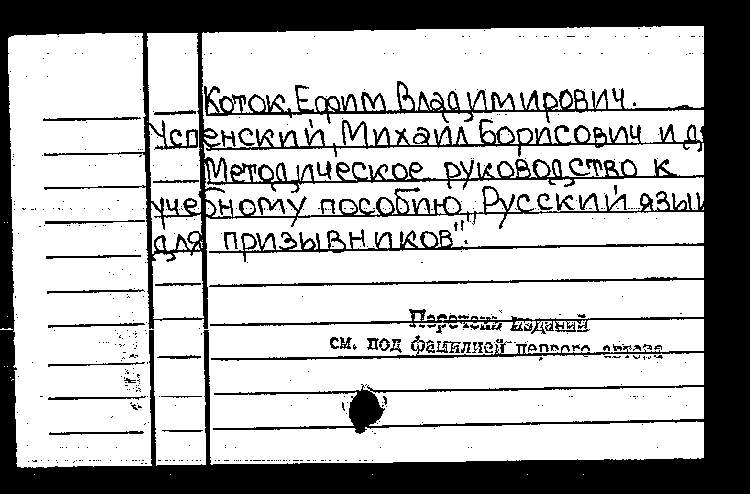 Коток, Ефим Владимирович.
Успенский, Михаил Борисович и д
Методическое руководство к
учебному пособию „Русский язык
для призывников".
Перечень изданий
см. под фамилией первого автора